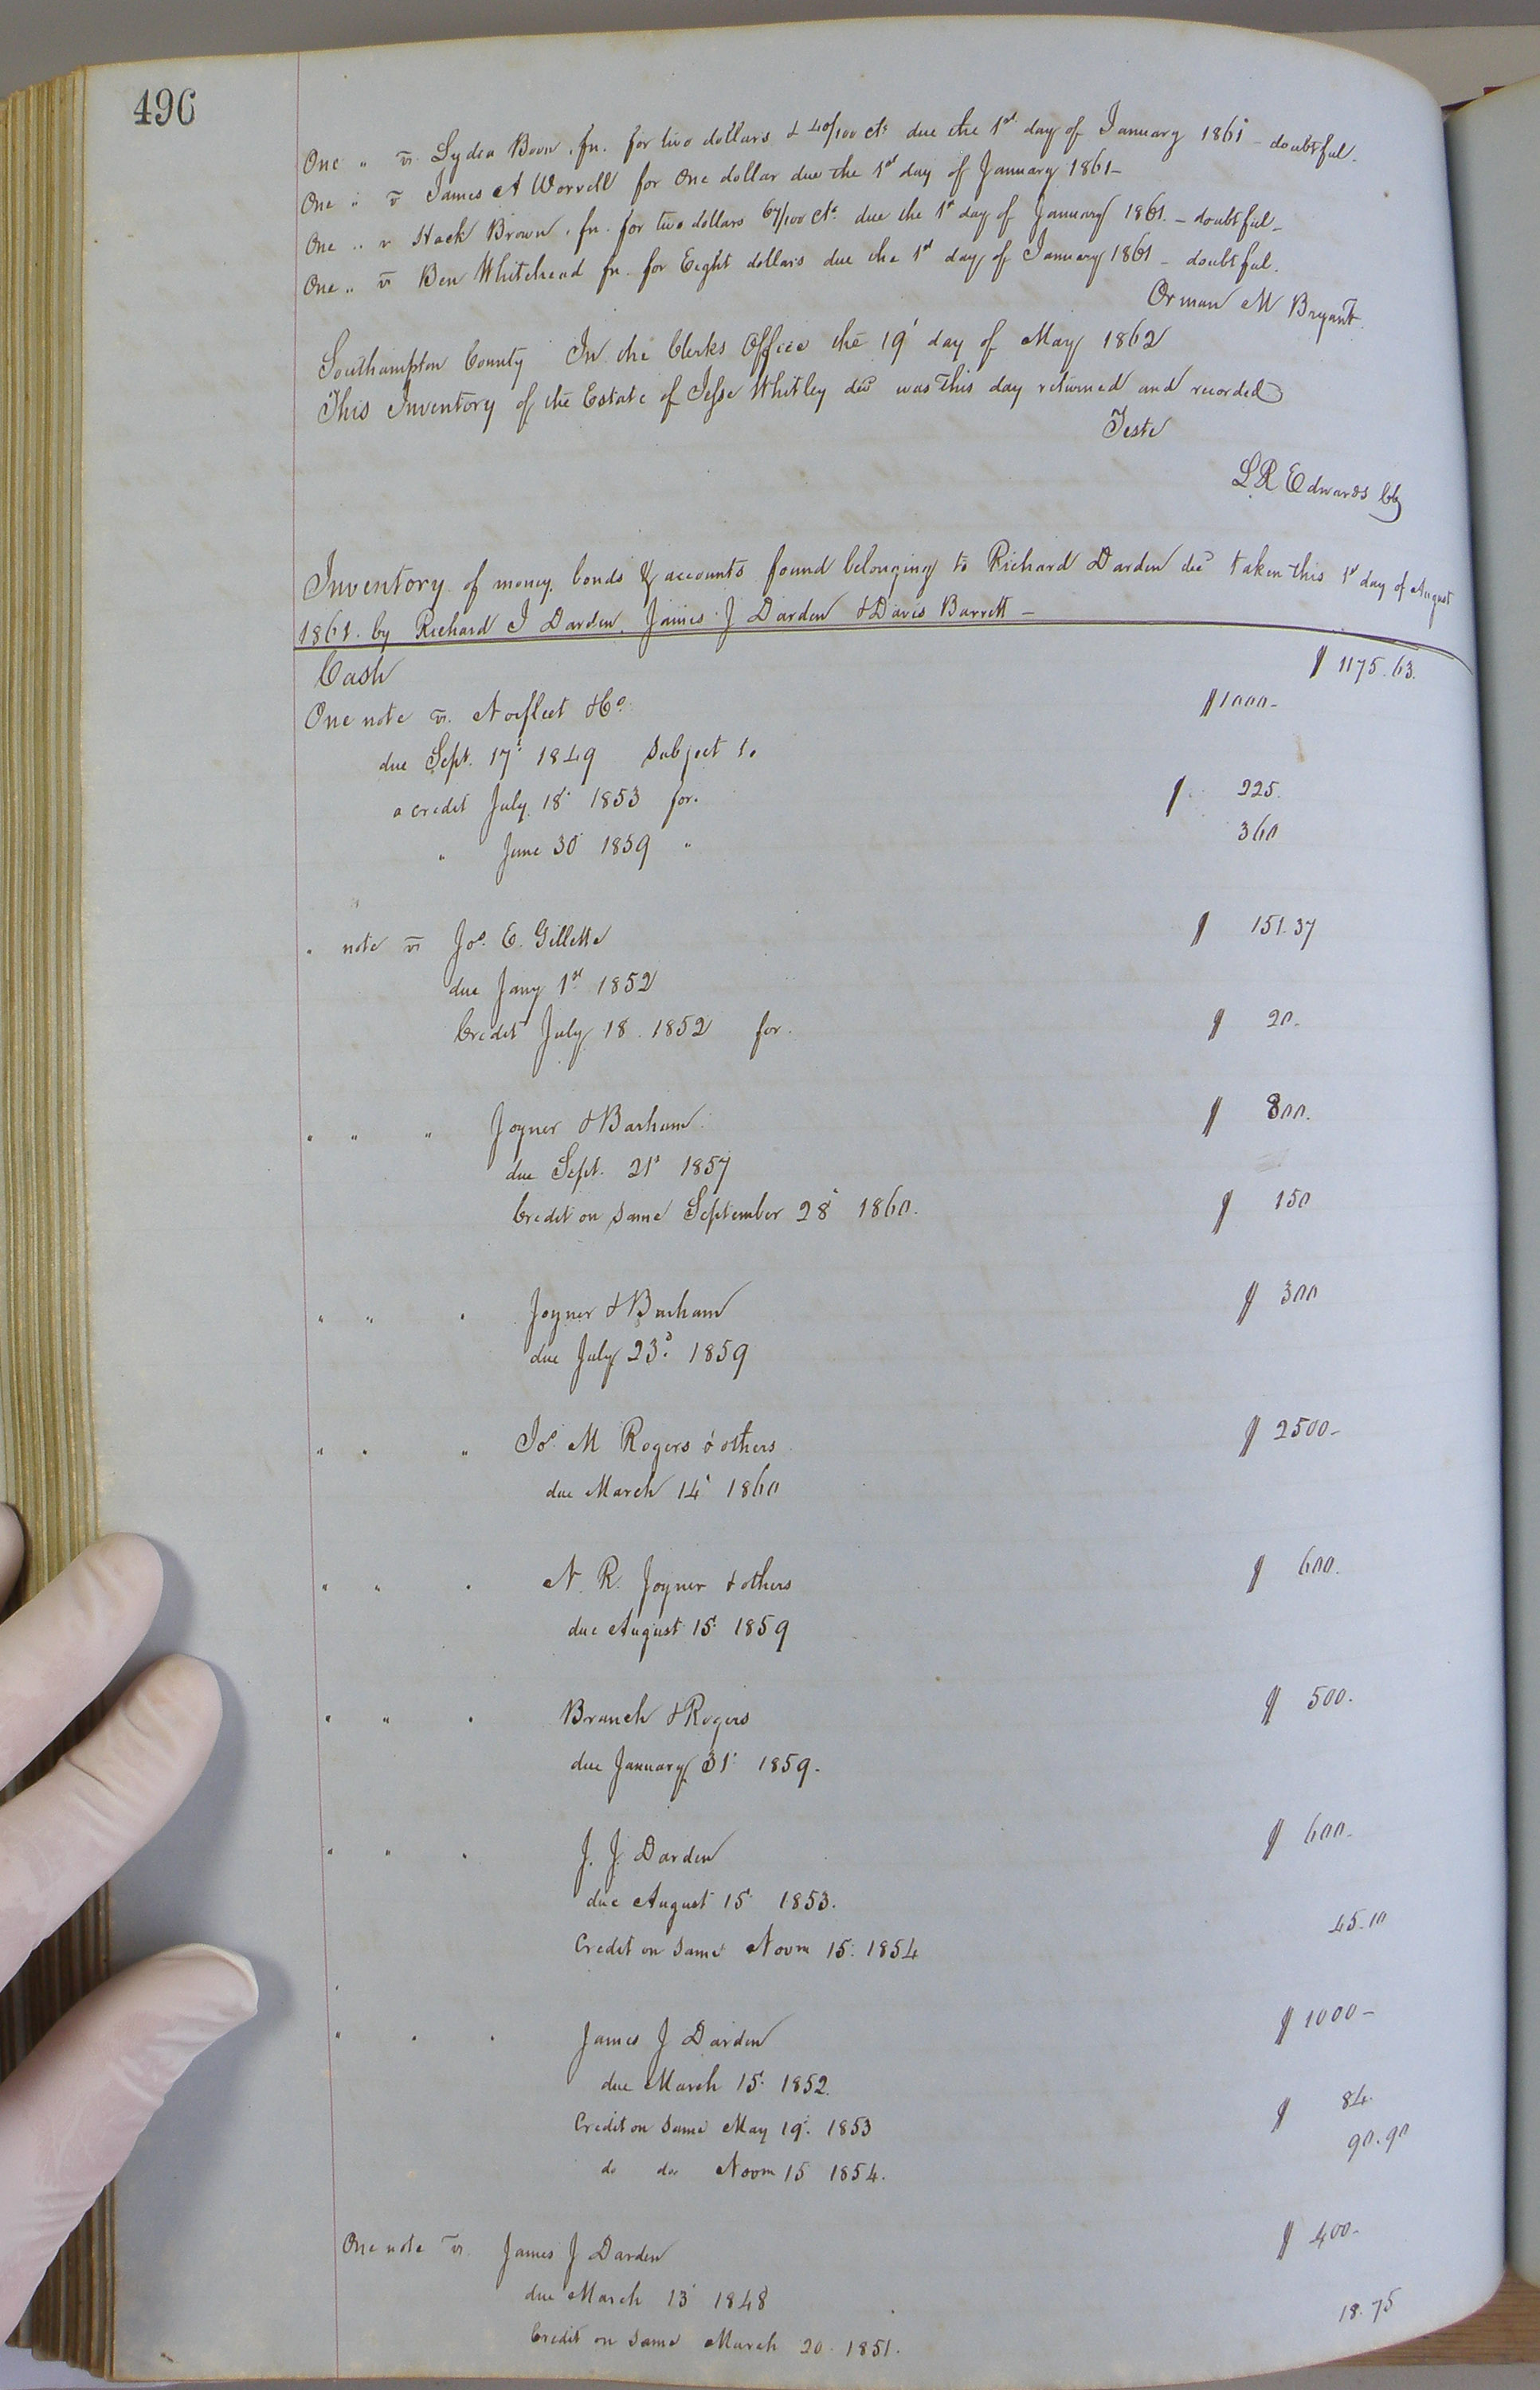 496
One " vs. Lydia Boon, fn. for two dollars & 40/100 cts due the 1st day of January 1861 – doubtful.
One " vs James A Worrell for One dollar due the 1st day of January 1861 –
One " v Hack Brown, fn. for two dollars 67/100 cts. due the 1st day of January 1861. – doubtful –
One " vs Ben Whitehead fn. for Eight dollars due the 1st day of January 1861 – doubtful.
Orman M Bryant.
Southampton County In the Clerks Office the 19' day of May 1862
This Inventory of the Estate of Jesse Whitley decd was this day returned and recorded
Teste
L R Edwards Clk
Inventory of money, bonds & accounts found belonging to Richard Darden decd taken this 1st day of August
1861. by Richard J Darden, James J Darden & Davis Barrett –
Cash $ 1175.63.
One note vs. Norfleet & Co. $ 1000 –
due Sept. 17' 1849 Subject to
a credit July 18' 1853 for. $ 225.
" June 30' 1859 " 360
" note vs Jos. E. Gillette $ 151.37
due Jany 1st 1852
Credit July 18. 1852 for. $ 20 –
" " " Joyner & Barham. $ 800.
due Sept. 21st 1857
Credit on same September 28' 1860. $ 150
" " " Joyner & Barham $ 300
due July 23d. 1859
" " " Jos. M Rogers & others $ 2500 –
due March 14' 1860
" " " N. R. Joyner & others $ 600.
due August 15' 1859
" " " Branch & Rogers $ 500.
due January 31' 1859.
" " " J. J. Darden $ 600 –
due August 15' 1853.
Credit on same Novm 15' 1854 45.10
" " " James J Darden $ 1000 –
due March 15' 1852.
Credit on same May 19'. 1853 $ 84.
do do Novm 15 1854. 90.90
One note vs. James J Darden $ 400 –
due March 13' 1848
Credit on same March 20. 1851. 18.75